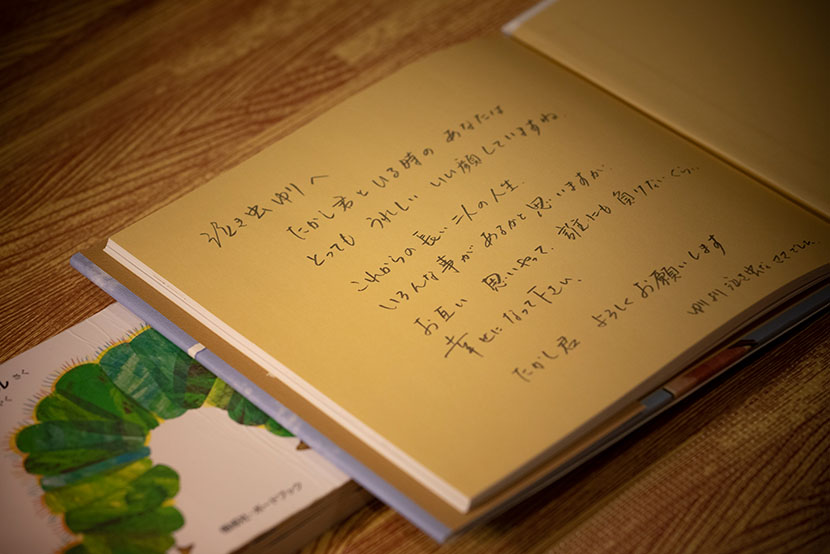 泣き虫ゆりへ
たかし君といる時の あなたは
とっても うれしい いい顔していますね.
これからの長い二人の人生.
いろんな事があるかと思いますが.
お互い 思いやって. 誰にも 負けないぐらい
幸せになって下さい.
たかし君 よろしくお願いします
ゆりより泣き虫
さく
偕成社・ボードブック